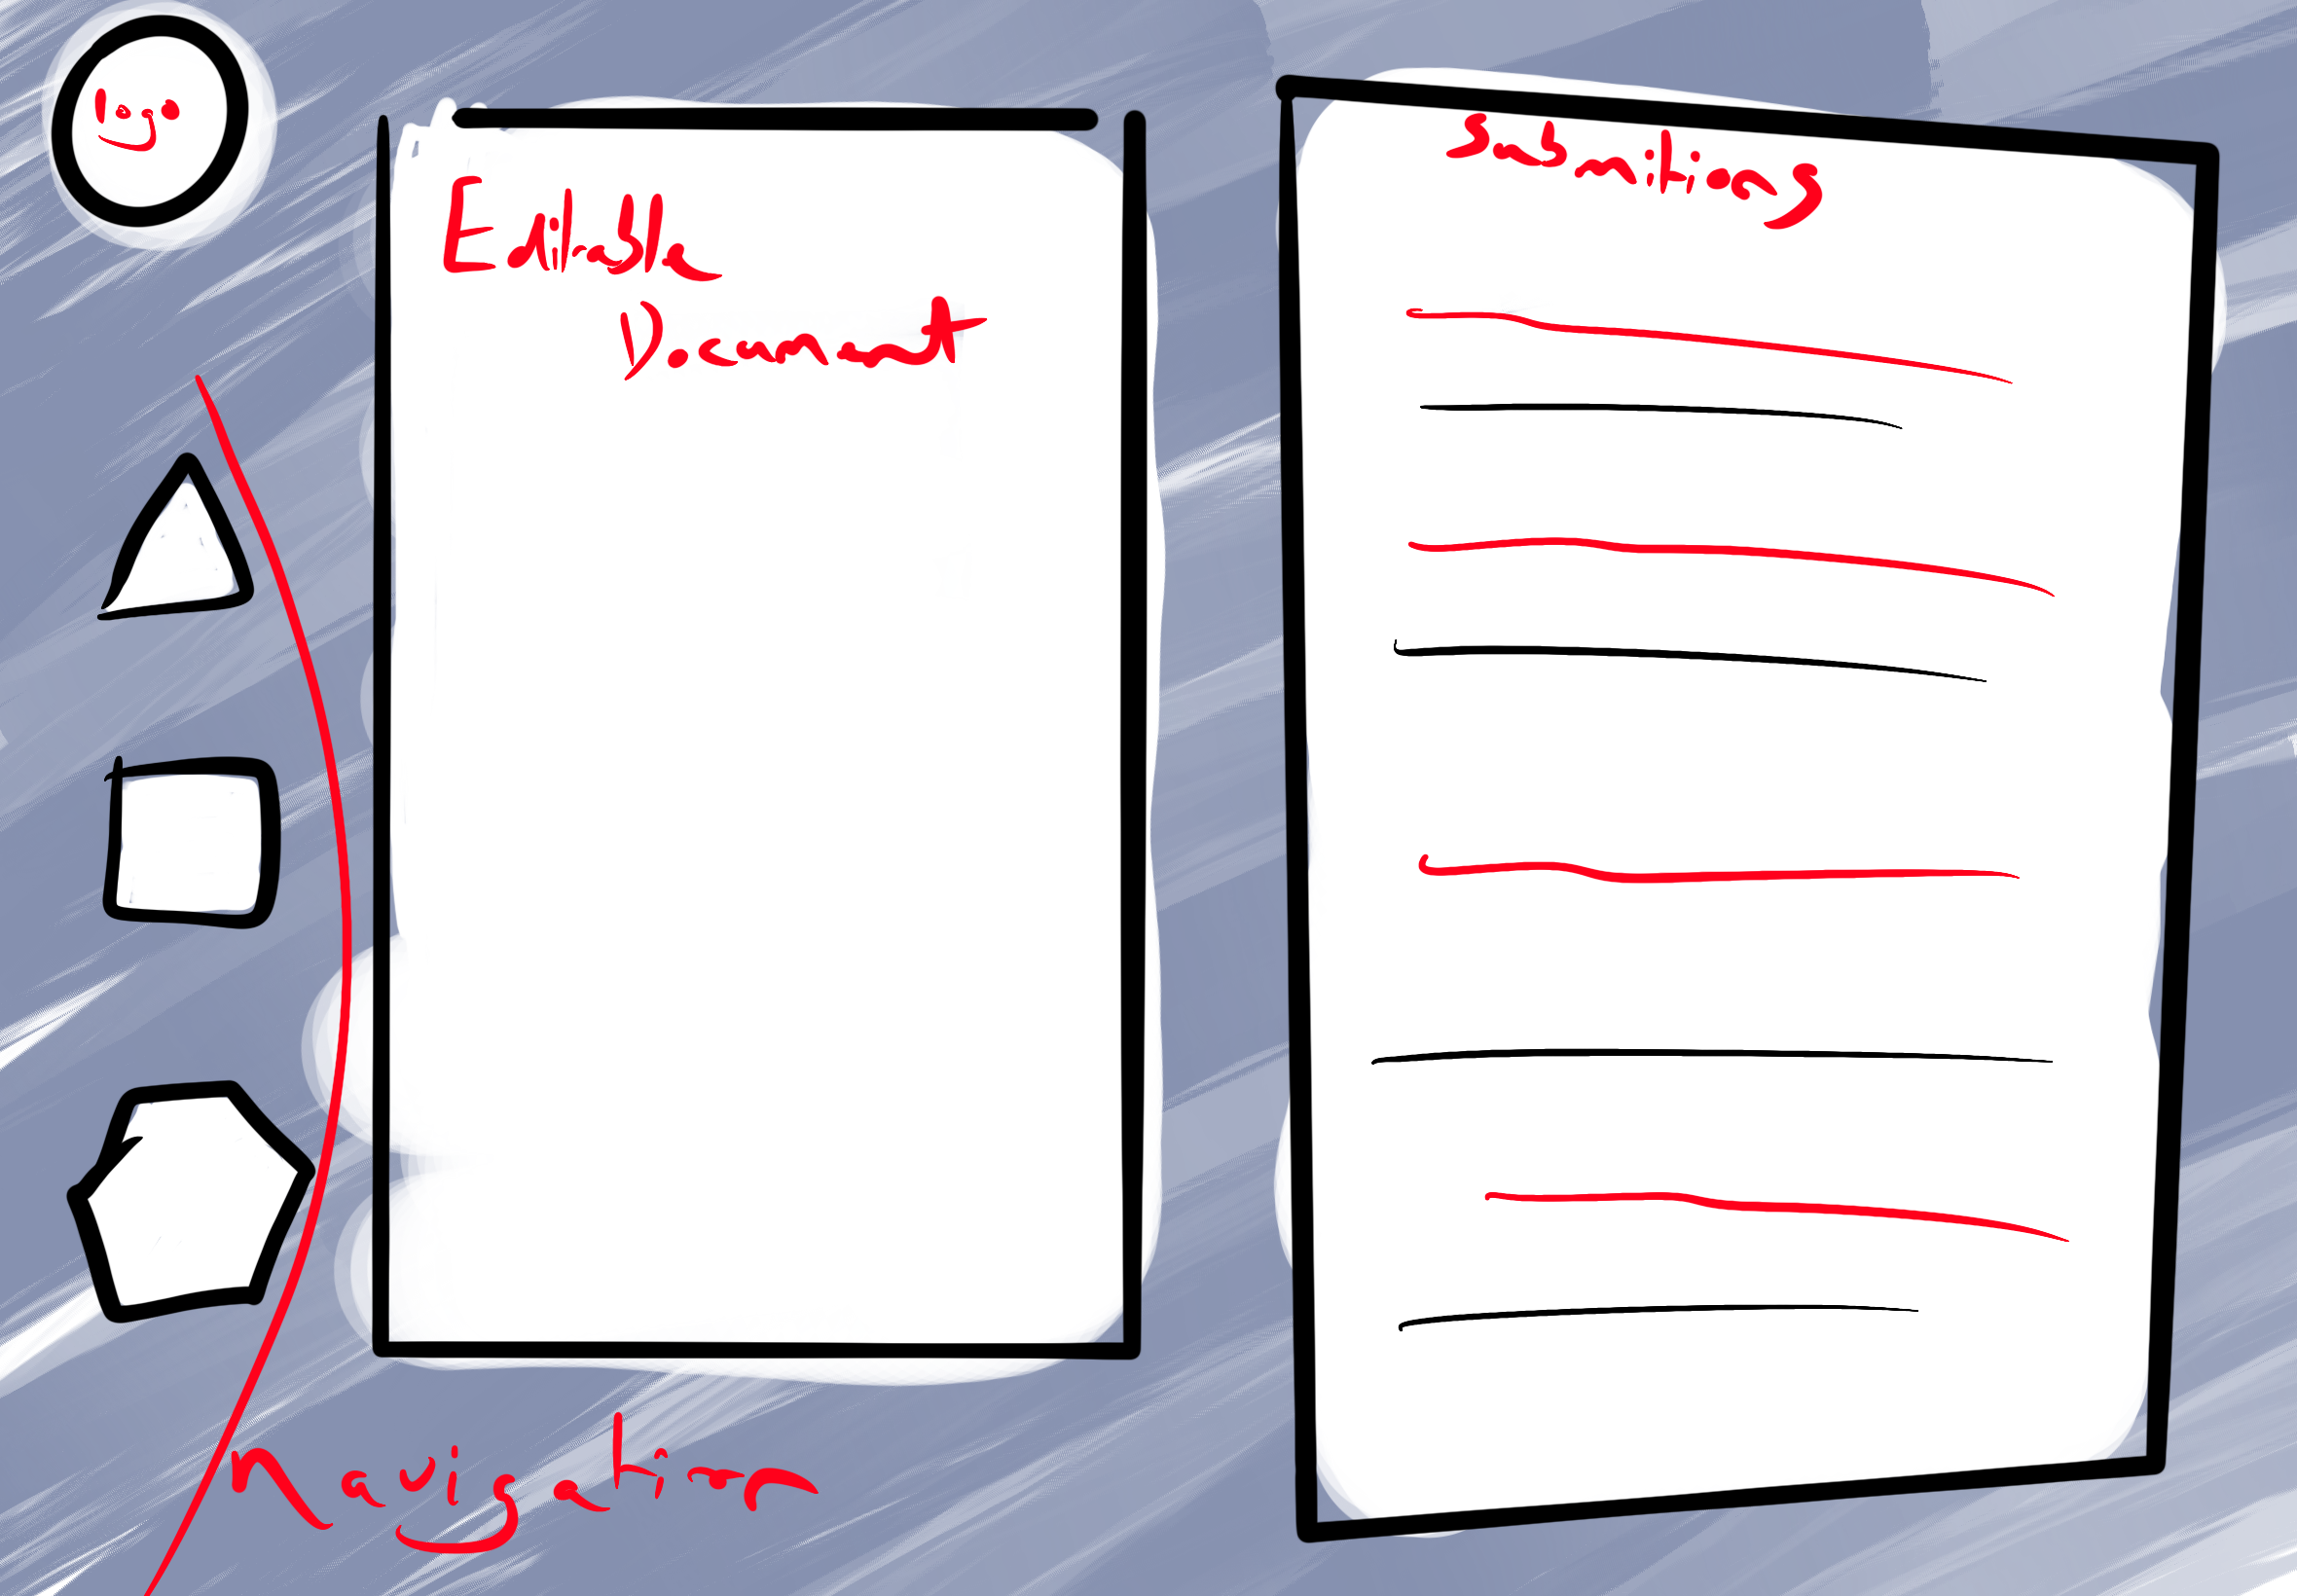 logo
Editable
Document
Submitions
Navigation